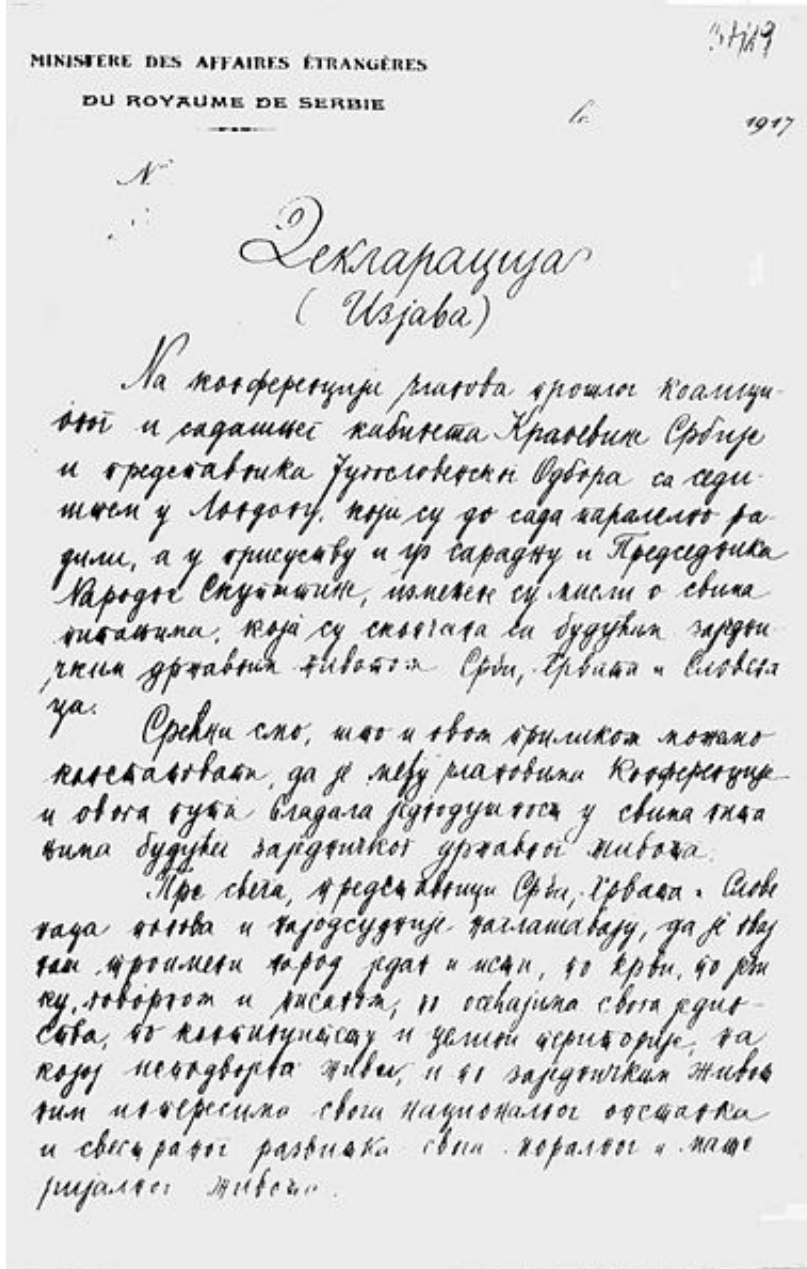 MINISTÈRE DES AFFAIRES ÉTRANGÈRES
DU ROYAUME DE SERBIE
1917
N
Декларација
(Изјава)
На конференцији чланова прошлог коалици-
оног и садашњег кабинета Краљевине Србије
и представника Југословенског Одбора са седи-
штем у Лондону, који су до сада паралелно ра-
дили, а у присуству и уз сарадњу и Председника
Народне Скупштине, измењене су мисли о свима
питањима, која су скопчана са будућим заједни-
чким државним животом Срба, Хрвата и Словена
ца.
Срећни смо, што и овом приликом можемо
констатовати, да је међу члановима Конференције
и овога пута владала једнодушност у свима пита
њима будућег заједничког државног живота.
Пре свега, представници Срба, Хрвата и Слове
наца понова и најодсудније наглашавају, да је овај
наш троимени народ један и исти, по крви, по јези
ку, говорном и писаном, по осећајима свога једин-
ства, по континуитету и целини територије, на
којој неподвојено живи, и по заједничким живот
ним интересима свога националног опстанка
и свестраног развитка свога моралног и мате
ријалног живота.